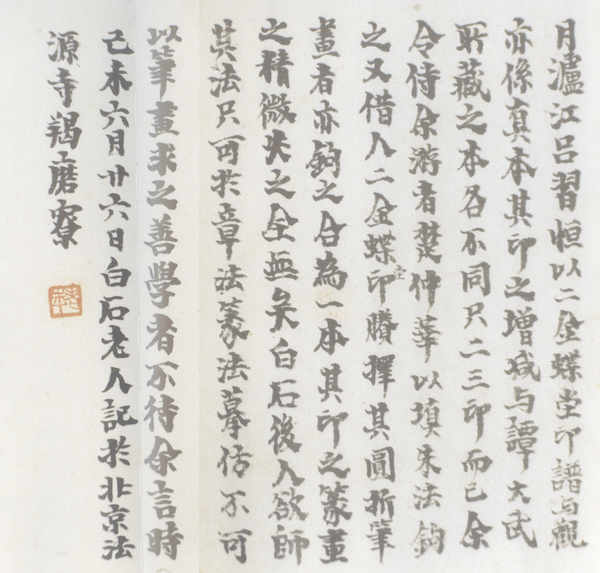 月瀘江呂習恒以二金蝶堂印譜与觀
亦係真本其印之增減与譚大武
所藏之本各不同只二三印而已余
令侍余游者楚仲華以填朱法鉤
之又借人二金蝶堂印賸擇其圓折筆
畫者亦鉤之合為一本其印之篆畫
之精微失之全無矣白石後人欲師
其法只可於章法篆法摹估不可
以筆畫求之善學者不待余言時
己未六月廿六日白石老人記於北京法
源寺羯磨寮